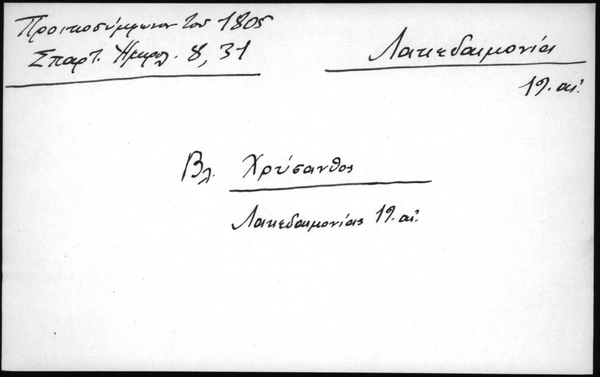 Προικοσύμφωνον τοῦ 1805
Σπαρτ. Ἡμερολ. 8, 31
Λακεδαιμονίας
19. αἰ.
Βλ. Χρύσανθος
Λακεδαιμονίας 19. αἰ.